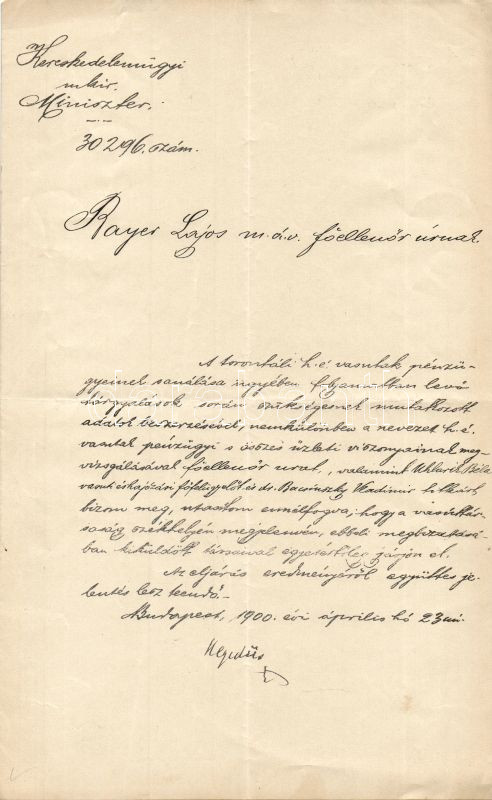 Kereskedelemügyi
m. kir.
Miniszter.
30296. szám.
Rayer Lajos m. á. v. főellenőr úrnak.
A torontáli h. é. vasutak pénzü-
gyeinek sanálása ügyében folyamatban levő
tárgyalások során szükségesnek mutatkozott
adatok beszerzésével, nemkülönben a nevezet h. é.
vasutak pénzügyi s összes üzleti viszonyainak meg-
vizsgálásával főellenőr urat, valamint Béla
vasuti és hajózási főfelügyelőt és dr. Bacsinszky Vladimir titkárt
bizom meg, utasitom ennélfogva, hogy a vasuttár-
saság székhelyén megjelenvén, ebbeli megbizatásá-
ban kiküldött társaival egyetértőleg járjon el.
Az eljárás eredményéről együttes je-
lentés lesz teendő.-
Budapest, 1900. évi április hó 23án.
Hegedüs